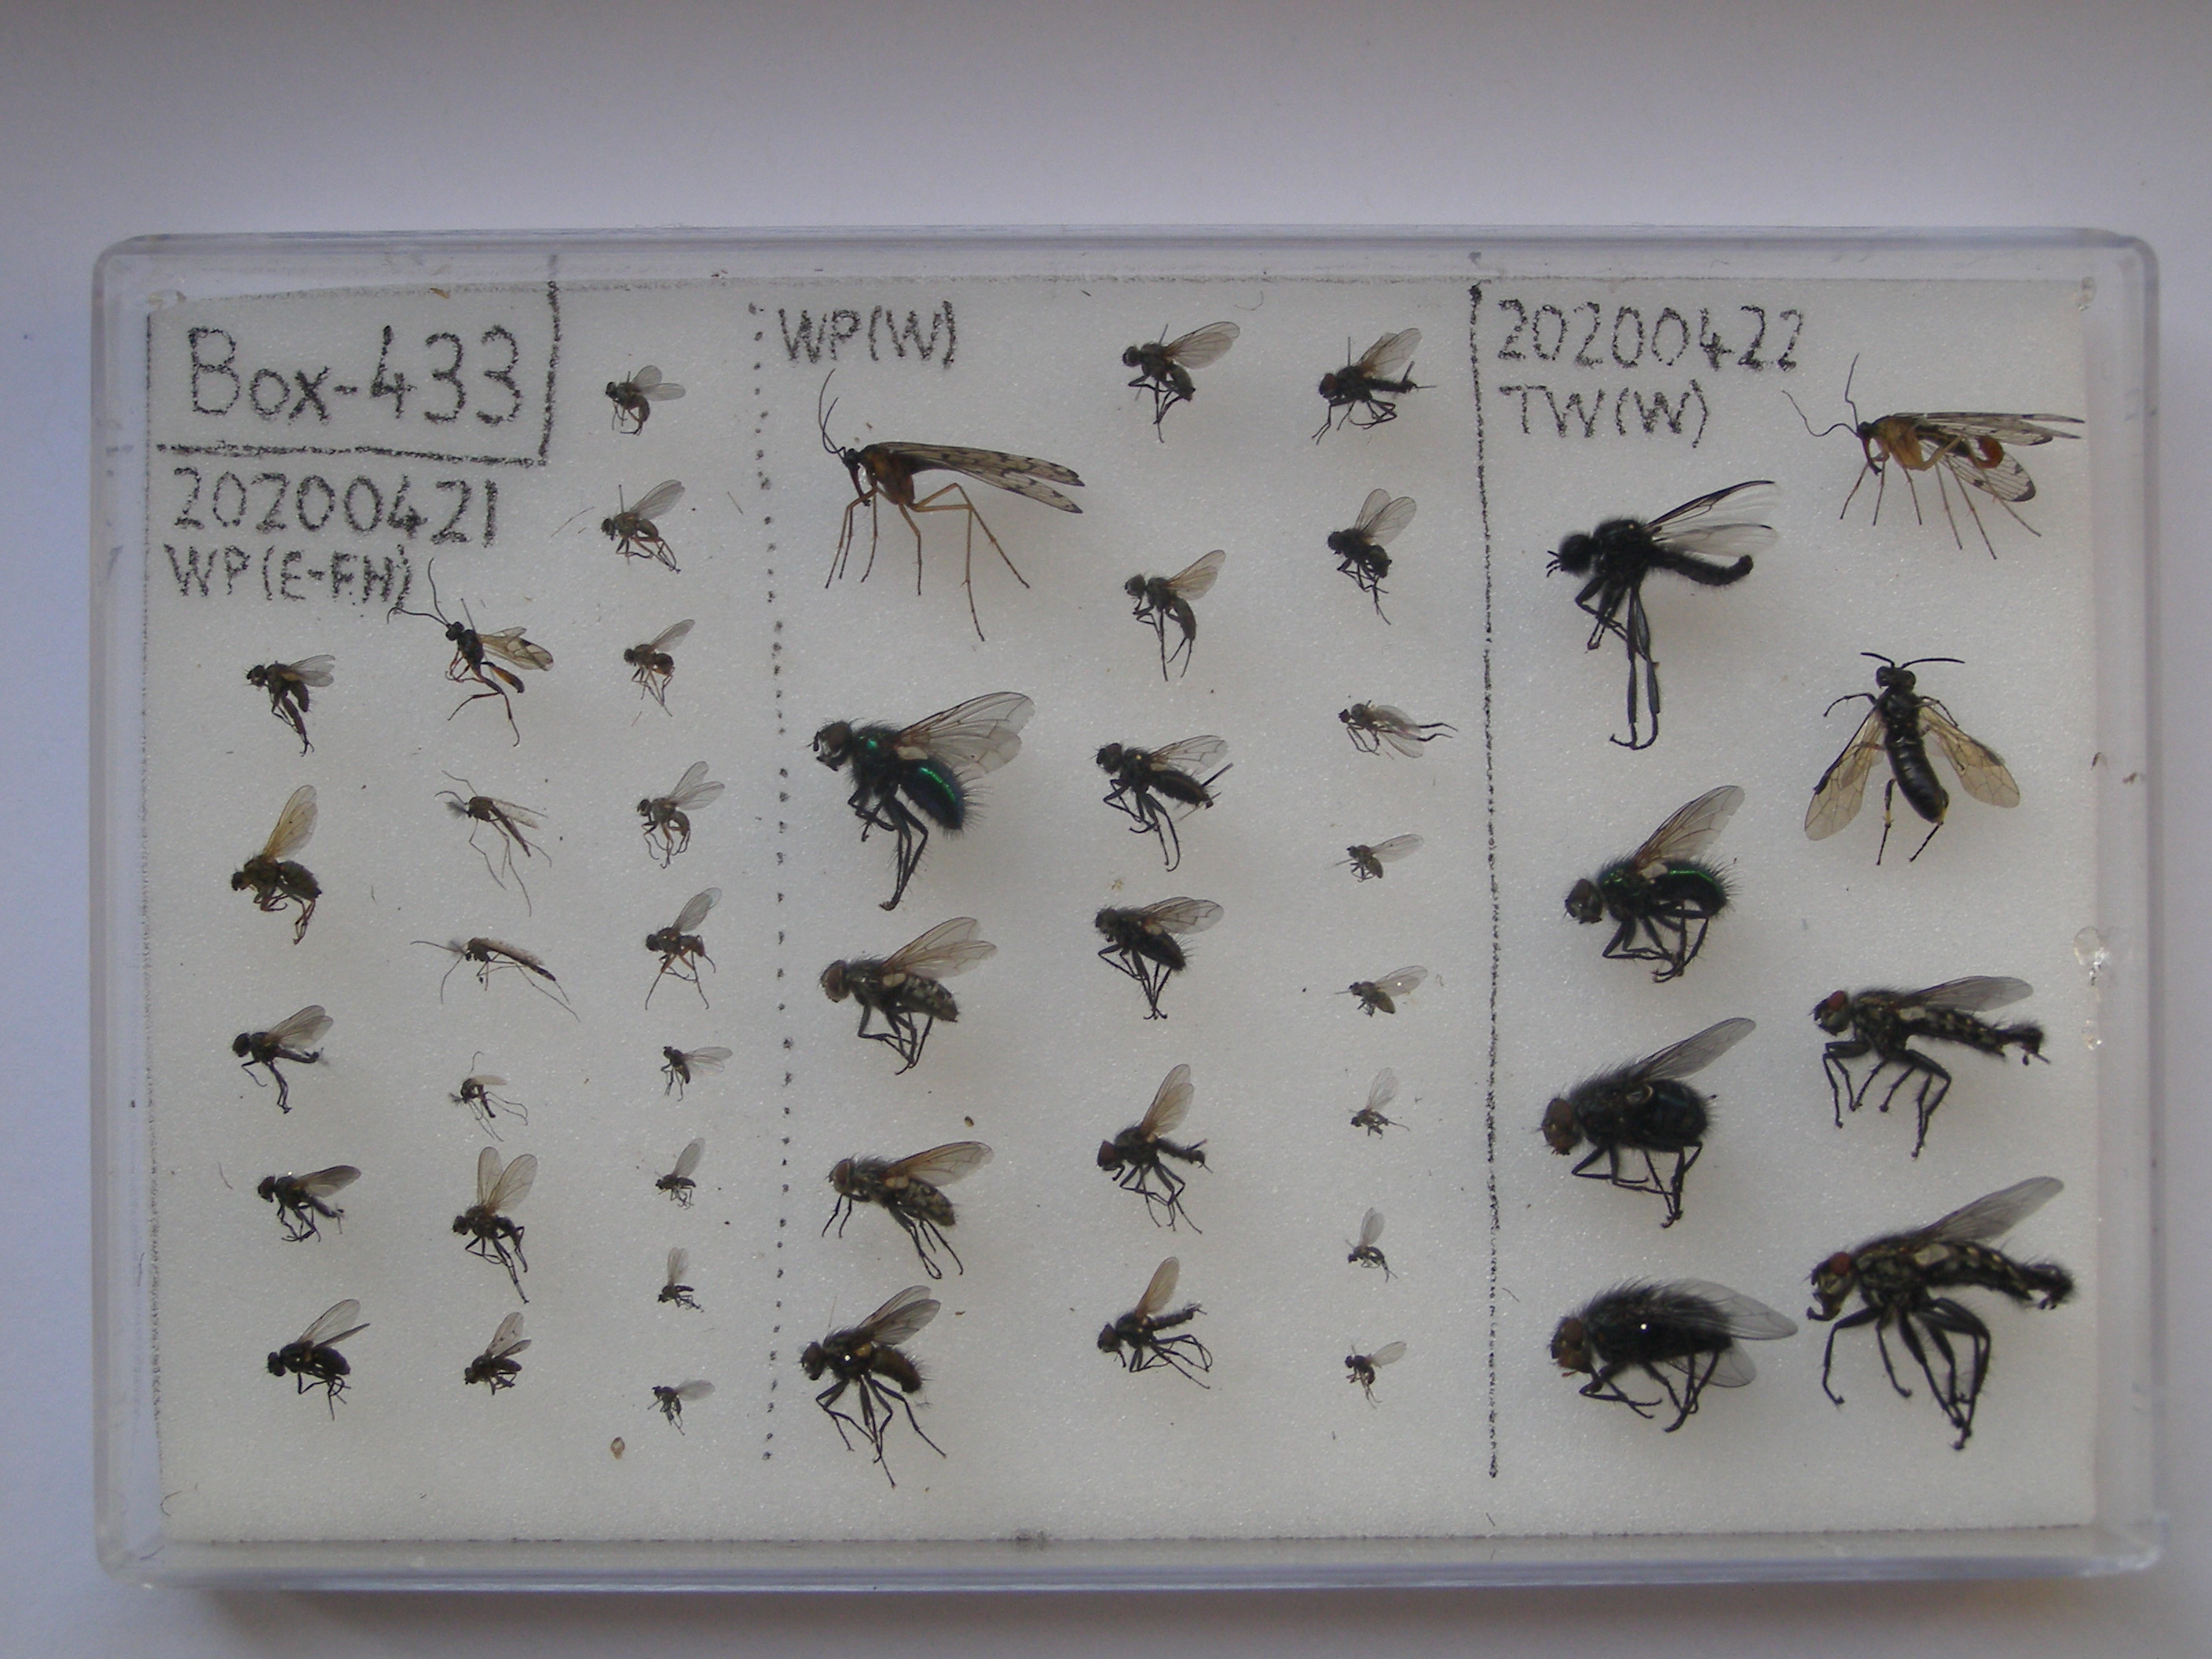 Box-433
20200421
WP(E-FH)
WP(W)
20200422
TW(W)